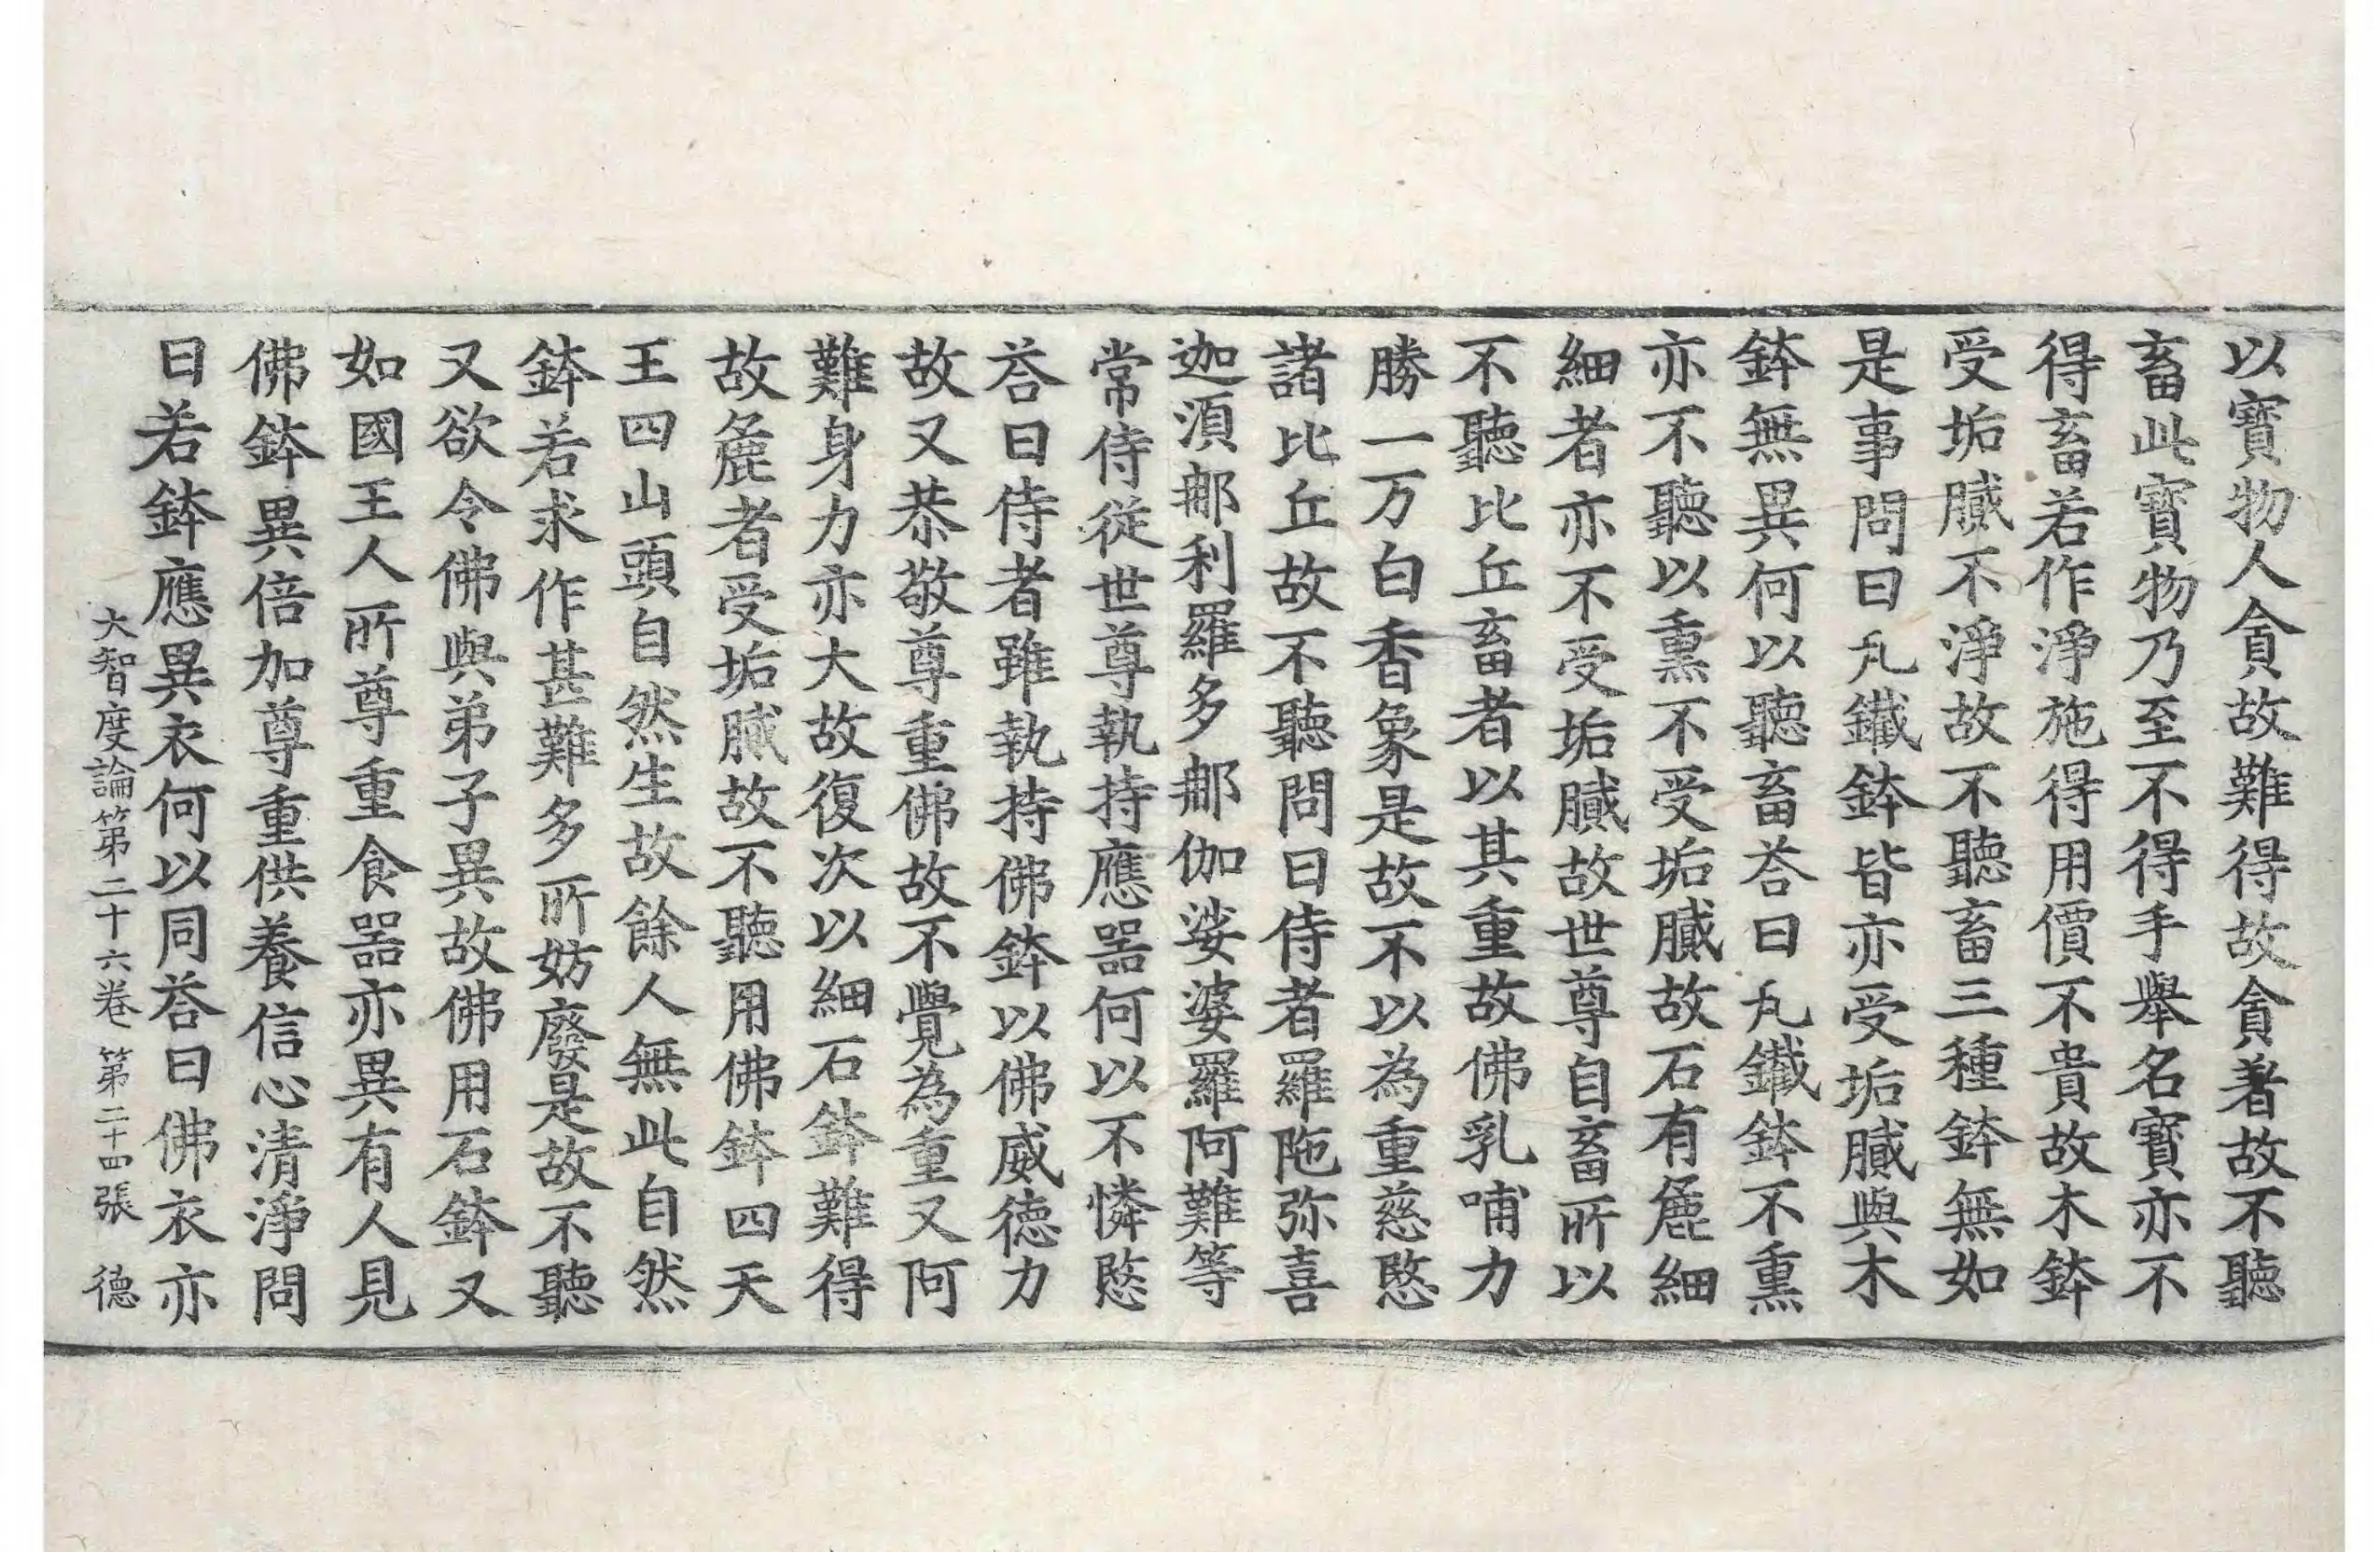 以寶物人貪故難得故貪著故不聽
畜此寶物乃至不得手舉名寶亦不
得畜若作淨施得用價不貴故木鉢
受垢膩不淨故不聽畜三種鉢無如
是事問曰瓦鐵鉢皆亦受垢膩與木
鉢無異何以聽畜荅曰瓦鐵鉢不熏
亦不聽以熏不受垢膩故石有麁細
細者亦不受垢膩故世尊自畜所以
不聽比丘畜者以其重故佛乳哺力
勝一万白香象是故不以為重慈愍
諸比丘故不聽問曰侍者羅陁弥喜
迦須郍利羅多郍伽娑婆羅阿難等
常侍從世尊執持應器何以不憐愍
荅曰侍者雖執持佛鉢以佛威德力
故又恭敬尊重佛故不覺為重又阿
難身力亦大故復次以細石鉢難得
故麁者受垢膩故不聽用佛鉢四天
王四山頭自然生故餘人無此自然
鉢若求作甚難多所妨廢是故不聽
又欲令佛與弟子異故佛用石鉢又
如國王人所尊重食器亦異有人見
佛鉢異倍加尊重供養信心清淨問
曰若鉢應異衣何以同荅曰佛衣亦
大智度論第二十六卷 第二十四張 德